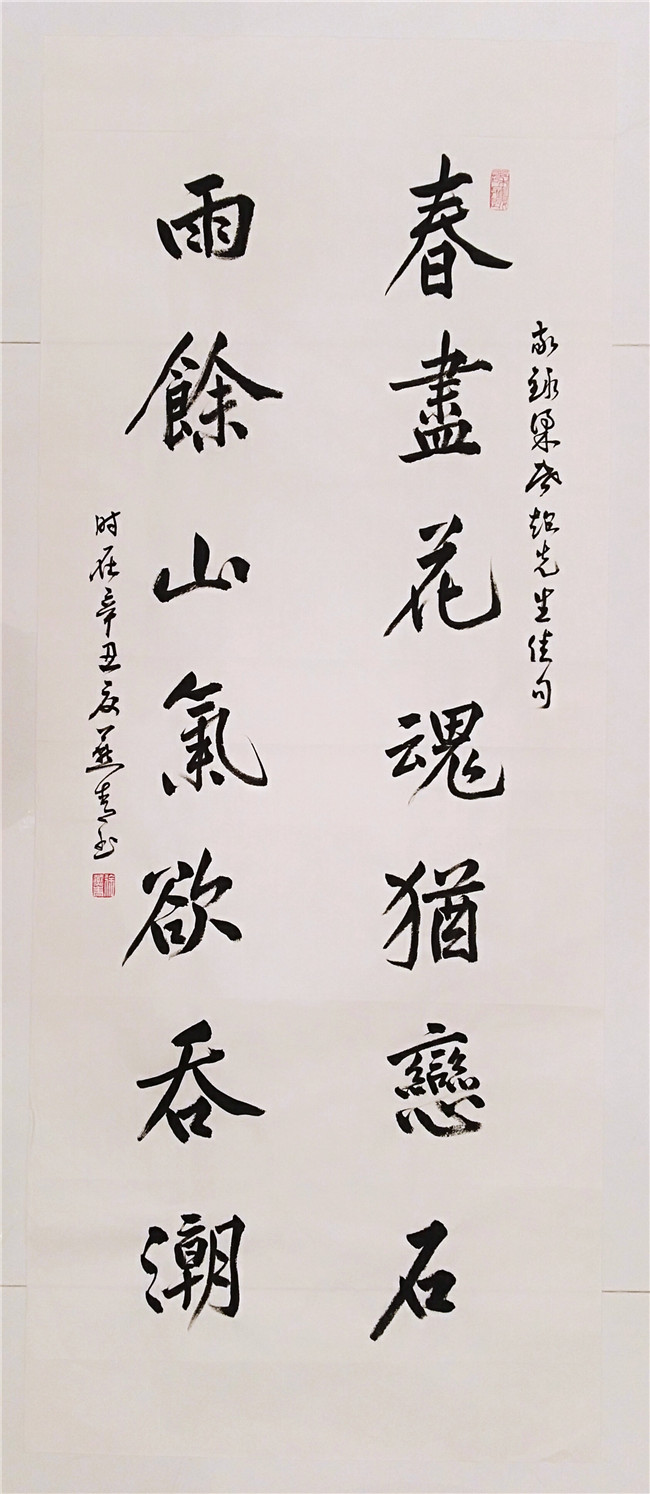 敬錄梁啓超先生佳句
春盡花魂猶戀石
雨餘山氣欲吞潮
时在辛丑夏燕青书